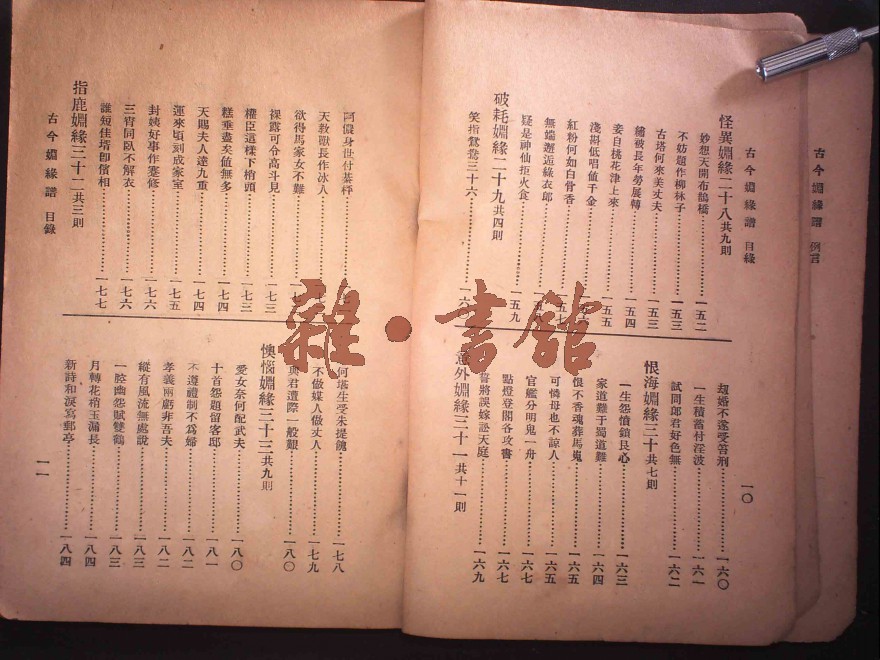 古今姻緣譜 例言
古今姻緣譜 目錄
一〇
怪異姻緣二十八共九則
妙想天開布鵲橋…………一五二
不妨題作柳林子…………一五三
古塔何來美丈夫…………一五三
繡被長年勞展轉…………一五四
妾自桃花津上來…………一五五
淺斟低唱値千金
紅粉何如白骨香
無端邂逅綠衣郎
疑是神仙拒火食…………一五九
破耗姻緣二十九共四則
笑指鴛鴦三十六…………一六
刼婚不遂受笞刑…………一六〇
一生積蓄付淫波…………一六一
試問郎君好色無…………一六二
恨海姻緣三十共七則
一生怨憤鎖艮心…………一六三
家道難于蜀道難…………一六四
恨不香魂葬馬嵬…………一六五
可憐母也不諒人…………一六五
官艦分明鬼一舟…………一六七
點燈登閣各攻書…………一六七
誓將誤嫁訟天庭…………一六九
意外姻緣三十一共十一則
阿儂身世付棊枰
天教獸長作冰人
欲得馬家女不難
裸露可令高斗見…………一七三
權臣這樣下梢頭…………一七三
糕垂盡矣値無多…………一七四
天賜夫人達九重…………一七四
運來頃刻成家室…………一七五
封姨好事作蹇修…………一七六
三宵同臥不解衣…………一七六
誰短佳塔卽儐相…………一七七
指鹿姻緣三十二共三則
何堪生受朱提餽…………一七八
不做媒人做丈人…………一七九
與君遭際一般艱…………一八〇
懊惱姻緣三十三共九則
愛女奈何配武夫…………一八〇
十首怨題留客邸…………一八一
不遵禮制不爲婦…………一八二
孝義兩虧非吾夫…………一八二
縱有風流無處說…………一八三
一腔幽怨賦雙鶴…………一八三
月轉花梢玉漏長…………一八四
新詩和淚寫郵亭…………一八四
古今姻緣譜 目錄
一一
雜·書館